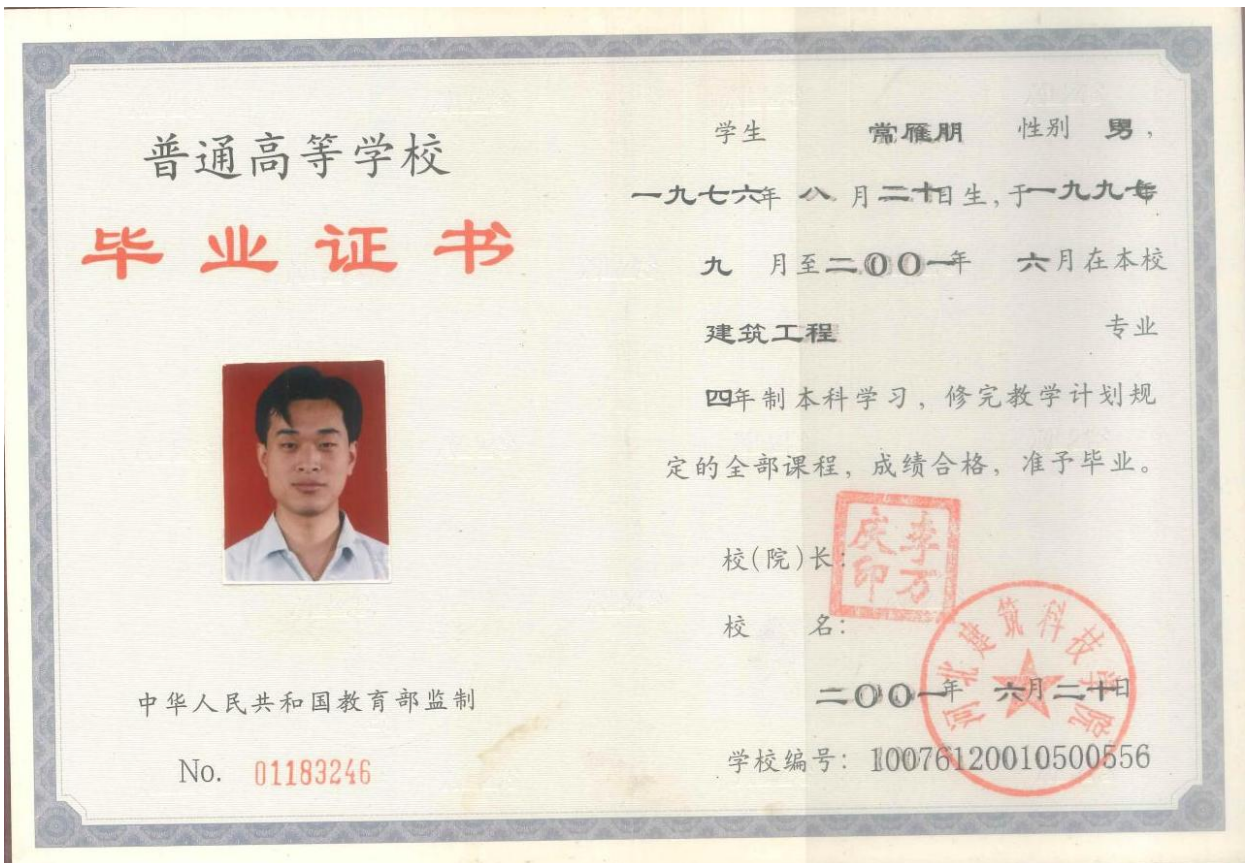 普通高等学校
毕业证书
中华人民共和国教育部监制
No. 01183246
学生 常雁朋 性别 男，
一九七六年 八 月二十日生，于一九九七年
九 月至二〇〇一年 六月在本校
建筑工程 专业
四年制本科学习，修完教学计划规
定的全部课程，成绩合格，准予毕业。
校(院)长：
李万庆印
校 名：
河北建筑科技学院
二〇〇一年 六月二十日
学校编号：10076120010500556